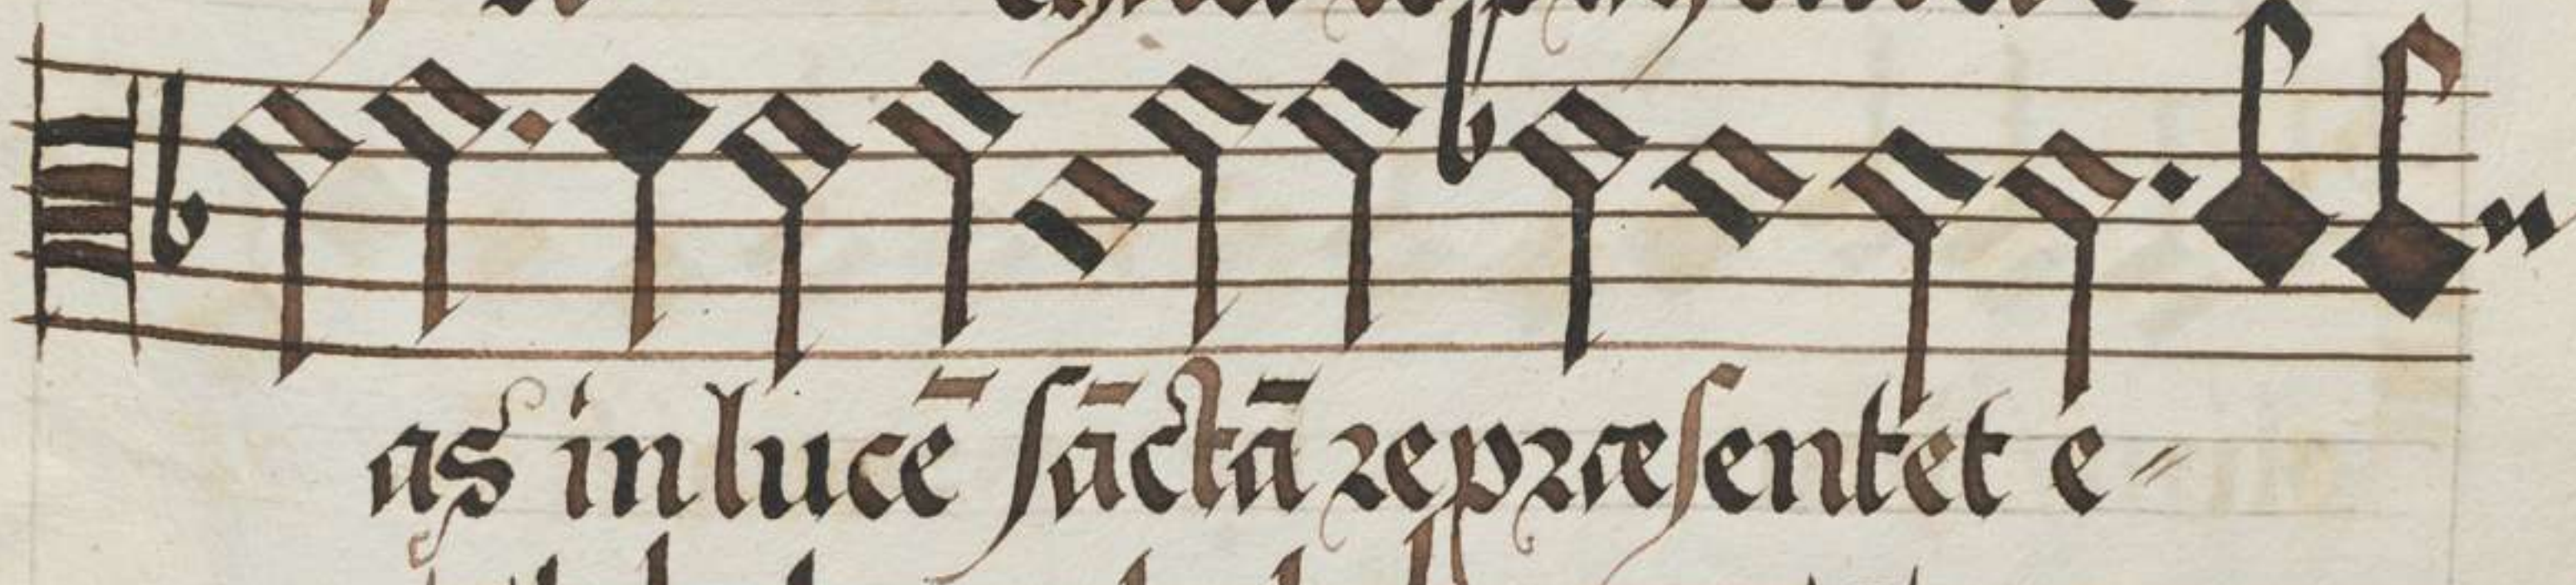 as in lucē sāctā repræsentet e=